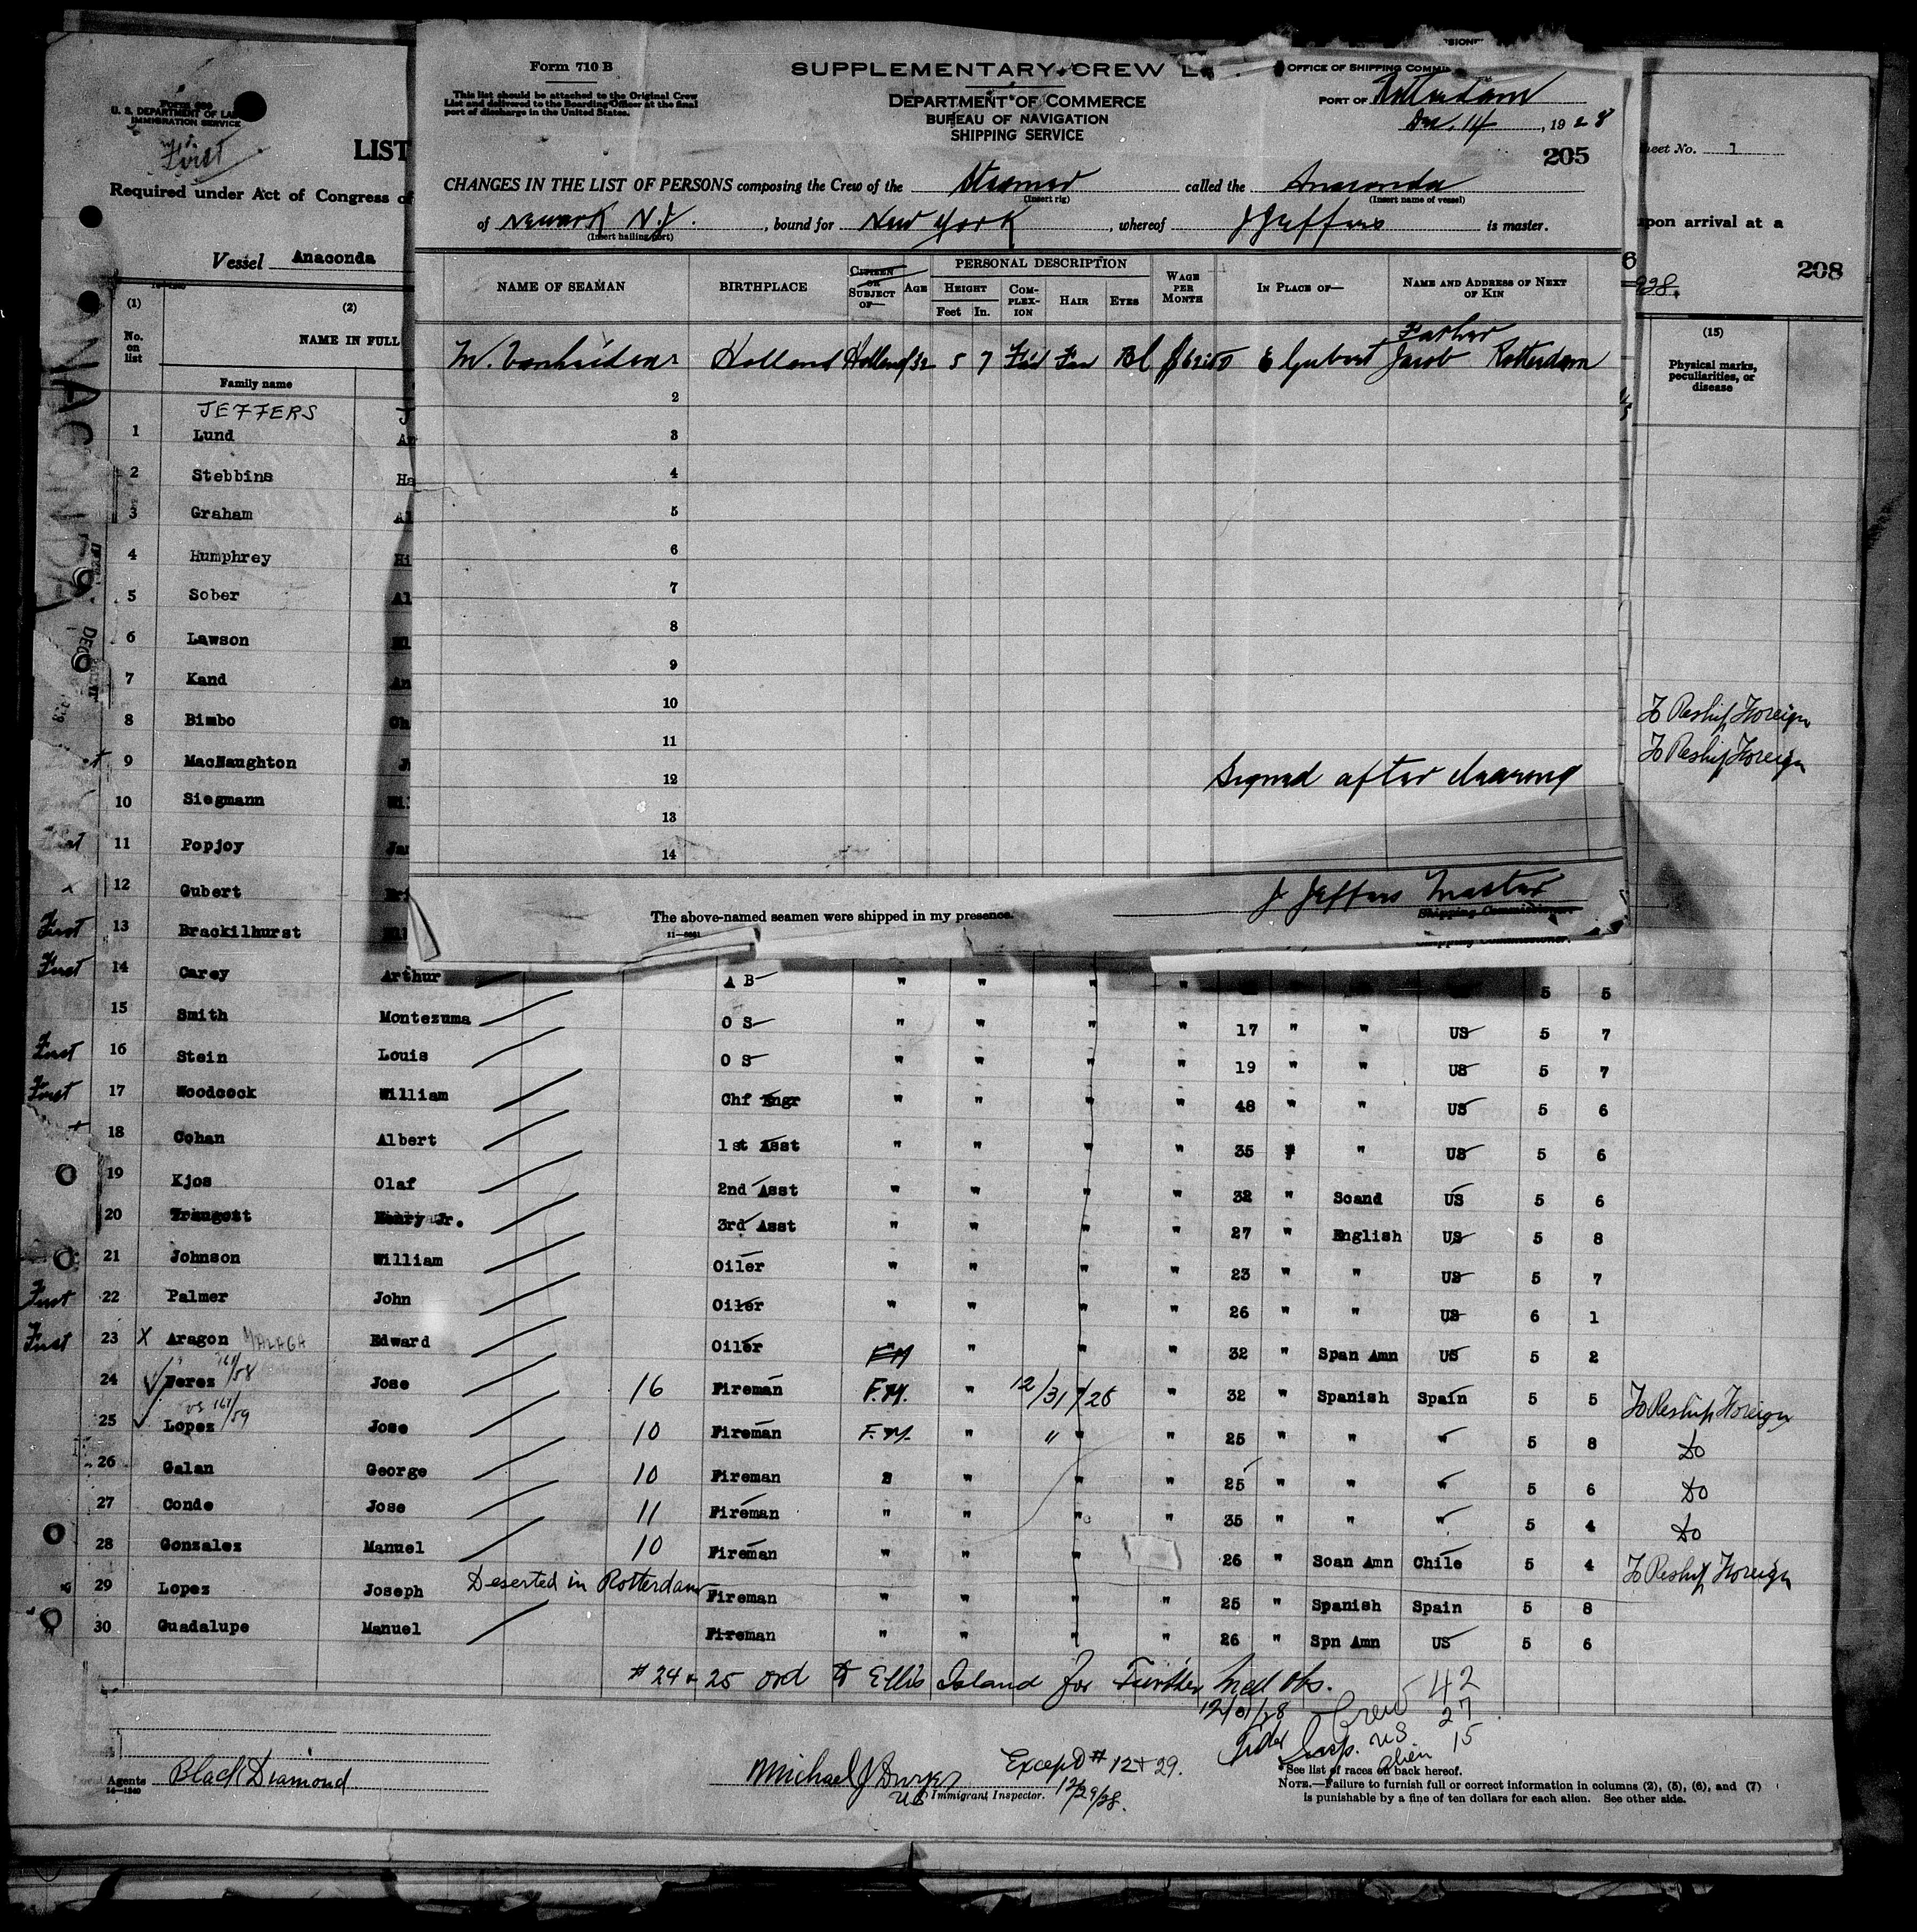 Form 710 B
This list should be attached to the Original Crew
List and delivered to the Boarding Officer at the final
port of discharge in the United States.
SUPPLEMENTARY CREW L
DEPARTMENT OF COMMERCE
BUREAU OF NAVIGATION
SHIPPING SERVICE
OFFICE OF SHIPPING COMMI
PORT OF Rotterdam
Dec. 14, 1928
205
CHANGES IN THE LIST OF PERSONS composing the Crew of the Steamer called the Anaconda
(Insert rig) (Insert name of vessel)
of Newark N.J., bound for New York, whereof J Jeffers is master.
(Insert hailing port)
NAME OF SEAMAN BIRTHPLACE CITIZEN OR SUBJECT OF— AGE PERSONAL DESCRIPTION WAGE PER MONTH IN PLACE OF— NAME AND ADDRESS OF NEXT OF KIN
HEIGHT COMPLEXION HAIR EYES
Feet In.
Father
Holland Holland 32 5 7 Bl E Gubert Jacob Rotterdam
2
3
4
5
6
7
8
9
10
11
12 Signed after clearing
13
14
J Jeffers Master
The above-named seamen were shipped in my presence.
Shipping Commissioner.
U. S. DEPARTMENT OF LA
IMMIGRATION SERVICE
First
LIST
Required under Act of Congress of
Vessel Anaconda
Sheet No. 1
upon arrival at a
208
(1) (2) (15)
No. on list NAME IN FULL Physical marks, peculiarities, or disease
Family name
JEFFERS J
1 Lund
2 Stebbins Ha
3 Graham Al
4 Humphrey Hi
5 Sober Al
6 Lawson
7 Kand An
8 Bimbo Ch To Reship Foreign
9 MacNaughton To Reship Foreign
10 Siegmann Wil
11 Popjoy Jam
12 Gubert
First 13 Brackilhurst
First 14 Carey Arthur A B " " " " 5 5
15 Smith Montezuma O S " " " " 17 " " US 5 7
First 16 Stein Louis O S " " " " 19 " " US 5 7
First 17 Woodcock William Chf Engr " " " " 48 " " US 5 6
18 Cohan Albert 1st Asst " " " " 35 " " US 5 6
19 Kjos Olaf 2nd Asst " " " " 32 " Scand US 5 6
20 Traugott Henry Jr. 3rd Asst " " " " 27 " English US 5 8
21 Johnson William Oiler " " " " 23 " " US 5 7
First 22 Palmer John Oiler " " " " 26 " " US 6 1
First 23 X Aragon MALAGA Edward Oiler " " " 32 " Span Amn US 5 2
24 Perez Jose 16 Fireman F.M. " 12/31/28 " 32 " Spanish Spain 5 5 To Reship Foreign
25 Lopez Jose 10 Fireman F.M. " " " 25 " " " 5 8 Do
26 Galan George 10 Fireman " " " " 25 " " " 5 6 Do
27 Conde Jose 11 Fireman " " " " 35 " " " 5 4 Do
28 Gonzalez Manuel 10 Fireman " " " " 26 " Soan Amn Chile 5 4 To Reship Foreign
29 Lopez Joseph Deserted in Rotterdam Fireman " " " " 25 " Spanish Spain 5 8
30 Guadalupe Manuel Fireman " " " " 26 " Spn Amn US 5 6
#24 & 25 ord to Ellis Island for Further Med Obs.
Crew 42
US 27
Alien 15
Agents Black Diamond
Michael J Dwyer
US Immigrant Inspector.
Except # 12 + 29.
12/29/28.
See list of races on back hereof.
NOTE.—Failure to furnish full or correct information in columns (2), (5), (6), and (7)
is punishable by a fine of ten dollars for each alien. See other side.